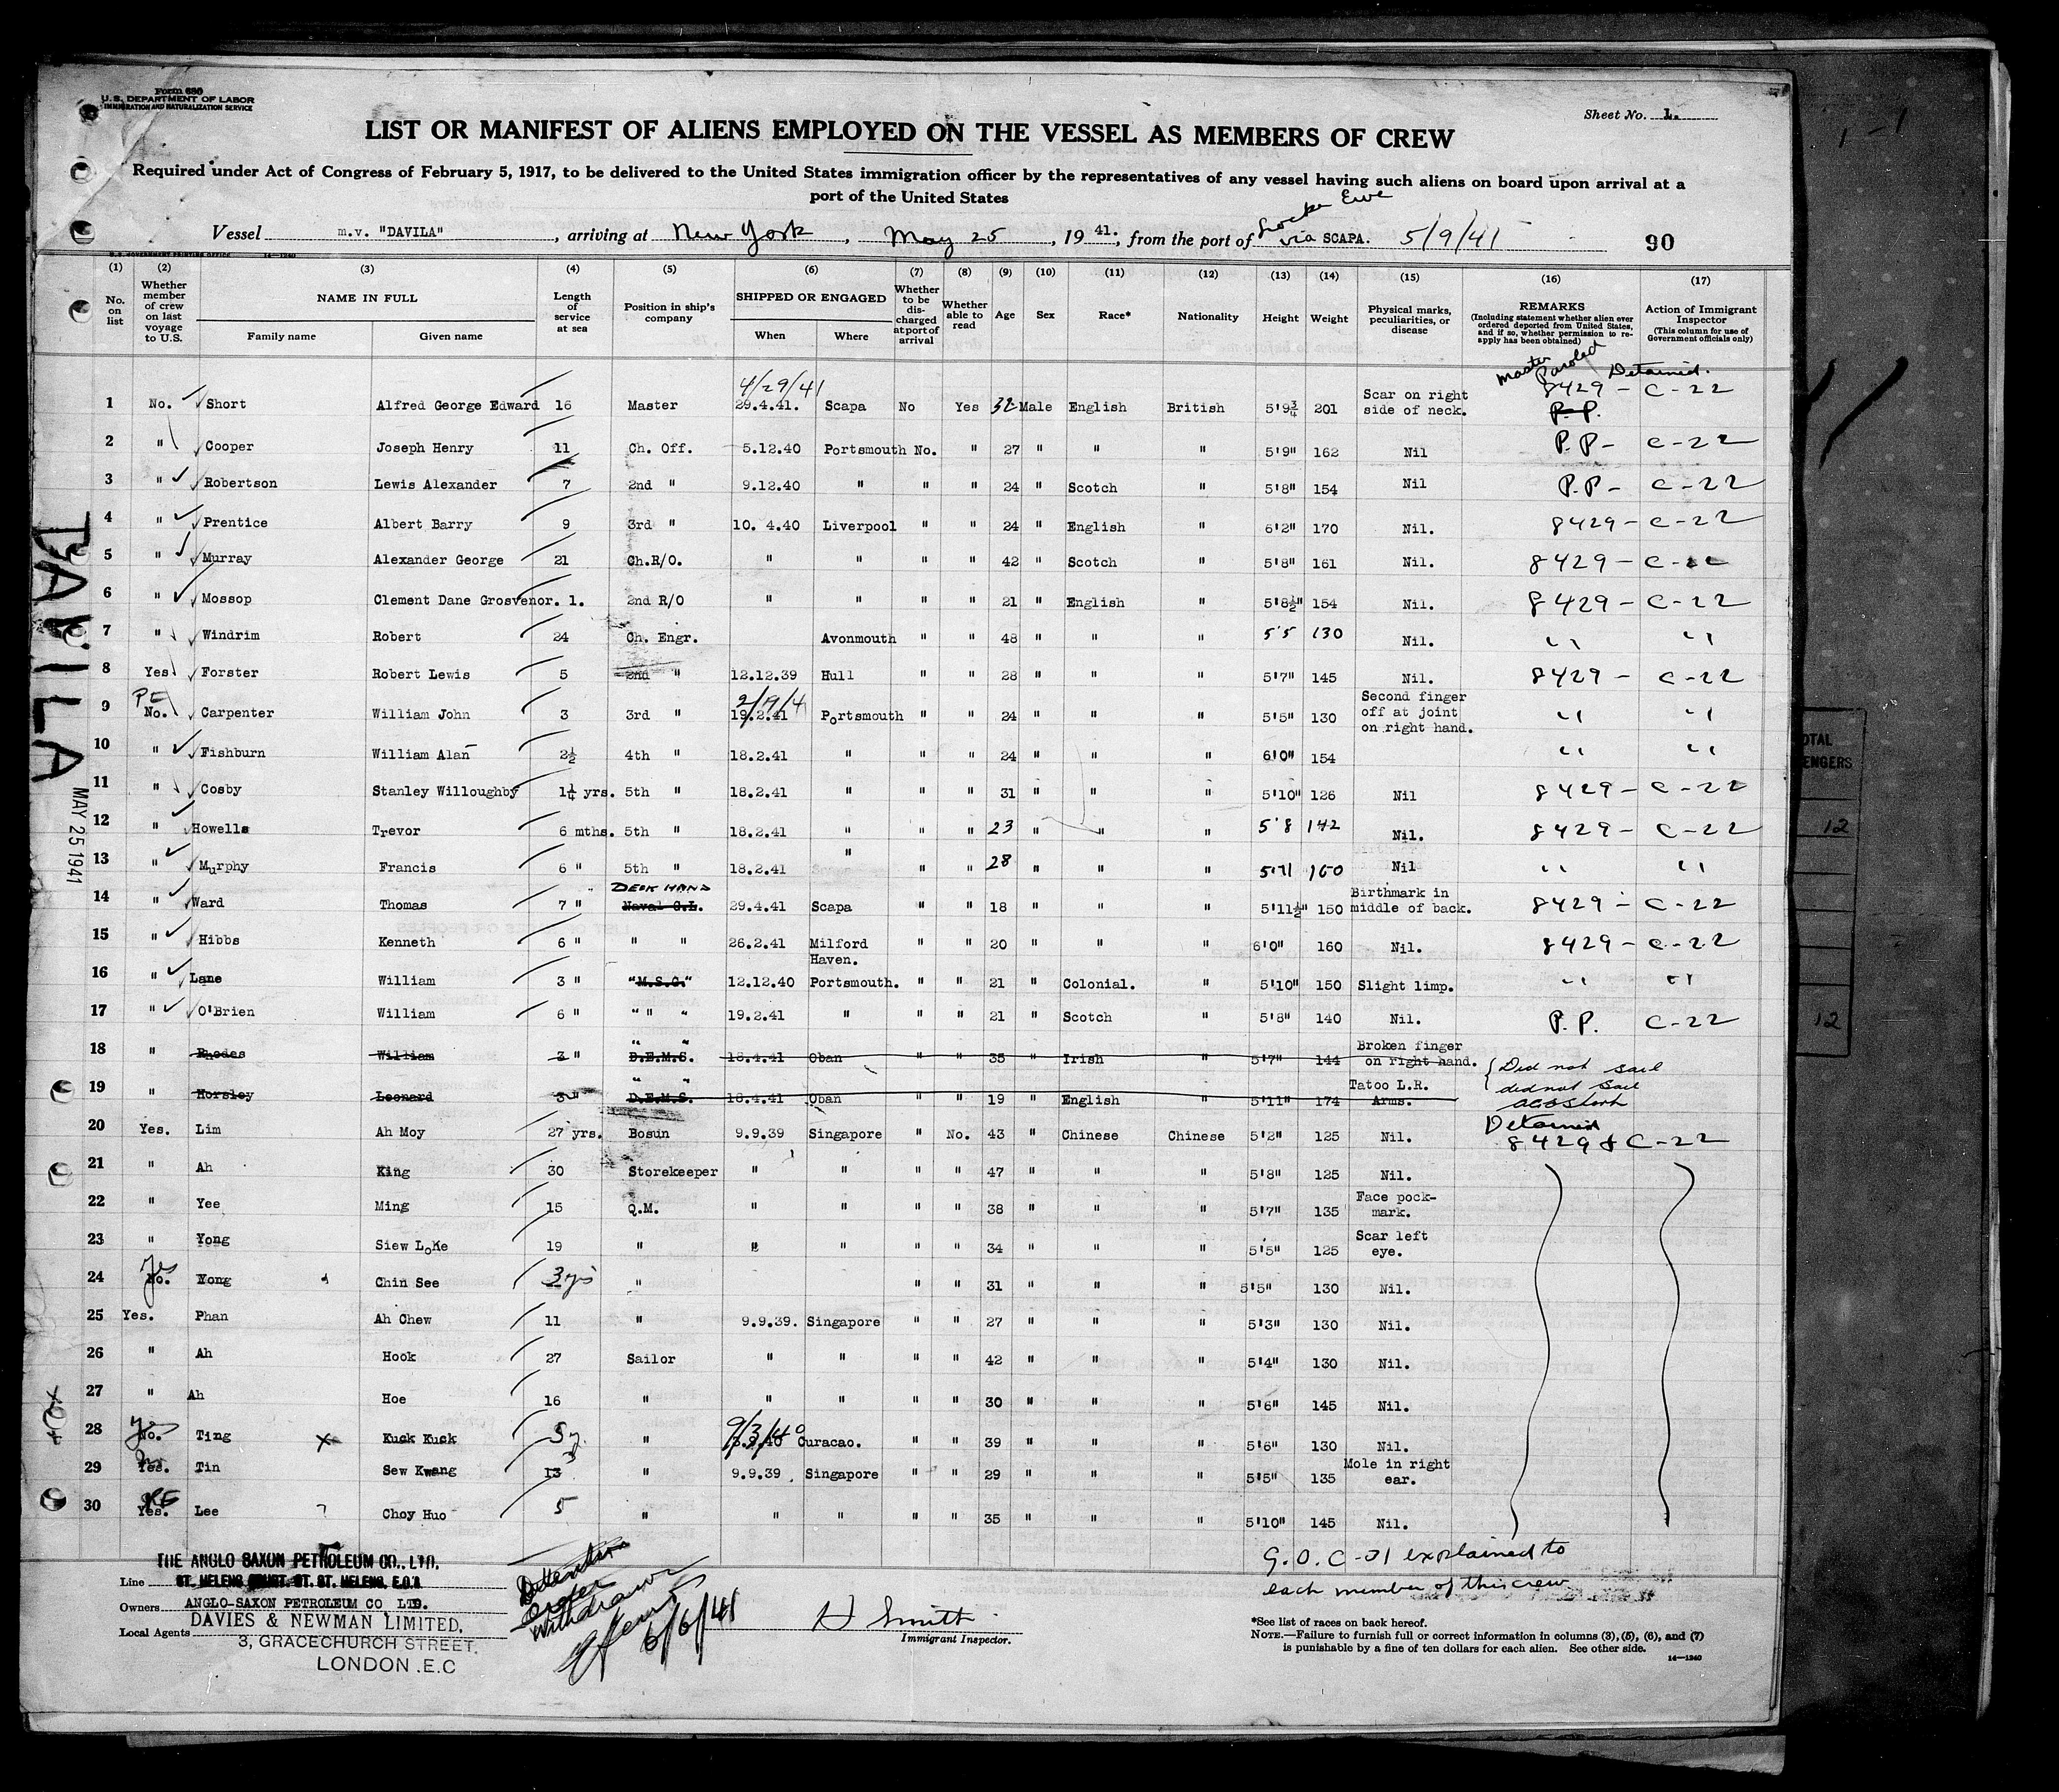 Form 680
U. S. DEPARTMENT OF LABOR
IMMIGRATION AND NATURALIZATION SERVICE
Sheet No. 1.
LIST OR MANIFEST OF ALIENS EMPLOYED ON THE VESSEL AS MEMBERS OF CREW
Required under Act of Congress of February 5, 1917, to be delivered to the United States immigration officer by the representatives of any vessel having such aliens on board upon arrival at a
port of the United States
Vessel m.v. "DAVILA", arriving at New York, May 25, 1941., from the port of Ewe via SCAPA. 5/9/41 90
U. S. GOVERNMENT PRINTING OFFICE 14—1240
(1) (2) (3) (4) (5) (6) (7) (8) (9) (10) (11) (12) (13) (14) (15) (16) (17)
No. on list
Whether member of crew on last voyage to U.S.
NAME IN FULL
Family name Given name
Length of service at sea
Position in ship's company
SHIPPED OR ENGAGED
When Where
Whether to be discharged at port of arrival
Whether able to read
Age
Sex
Race*
Nationality
Height
Weight
Physical marks, peculiarities, or disease
REMARKS
(Including statement whether alien ever ordered deported from United States, and if so, whether permission to reapply has been obtained)
Action of Immigrant Inspector
(This column for use of Government officials only)
Master Paroled Detained.
4/29/41
1 No. Short Alfred George Edward 16 Master 29.4.41. Scapa No Yes 32 Male English British 5'9¾ 201 Scar on right side of neck. 8429 - C-22
P.P.
2 " Cooper Joseph Henry 11 Ch. Off. 5.12.40 Portsmouth No. " 27 " " " 5'9" 162 Nil P.P- C-22
3 " Robertson Lewis Alexander 7 2nd " 9.12.40 " " " 24 " Scotch " 5'8" 154 Nil P.P- C-22
4 " Prentice Albert Barry 9 3rd " 10. 4.40 Liverpool " " 24 " English " 6'2" 170 Nil. 8429 - C-22
5 " Murray Alexander George 21 Ch.R/O. " " " " 42 " Scotch " 5'8" 161 Nil. 8429 - C-22
6 " Mossop Clement Dane Grosvenor. 1. 2nd R/O " " " " 21 " English " 5'8½" 154 Nil. 8429 - C-22
7 " Windrim Robert 24 Ch. Engr. Avonmouth " " 48 " " " 5'5 130 Nil. " "
8 Yes Forster Robert Lewis 5 2nd " 12.12.39 Hull " " 28 " " " 5'7" 145 Nil. 8429 - C-22
PE 2/19/41
9 No. Carpenter William John 3 3rd " 19.2.41 Portsmouth " " 24 " " " 5'5" 130 Second finger off at joint on right hand. " "
10 " Fishburn William Alan 2½ 4th " 18.2.41 " " " 24 " " " 6'0" 154 " "
11 " Cosby Stanley Willoughby 1¼ yrs. 5th " 18.2.41 " " " 31 " " " 5'10" 126 Nil 8429 - C-22
12 " Howells Trevor 6 mths. 5th " 18.2.41 " " " 23 " " " 5'8 142 Nil. 8429 - C-22
13 " Murphy Francis 6 " 5th " 18.2.41 " " " 28 " " " 5'11 160 Nil " "
DECK HAND
14 " Ward Thomas 7 " Naval G.L. 29.4.41 Scapa " " 18 " " " 5'11½" 150 Birthmark in middle of back. 8429 - C-22
15 " Hibbs Kenneth 6 " " " 26.2.41 Milford Haven. " " 20 " " " 6'0" 160 Nil. 8429 - C-22
16 " Lane William 3 " "M.S.G." 12.12.40 Portsmouth. " " 21 " Colonial. " 5'10" 150 Slight limp. " "
17 " O'Brien William 6 " " " " 19.2.41 " " " 21 " Scotch " 5'8" 140 Nil. P.P. C-22
18 " Rhodes William 3 " D.E.M.S. 18.4.41 Oban " " 35 " Irish " 5'7" 144 Broken finger on right hand. Did not sail
19 " Horsley Leonard 3 " D.E.M.S. 18.4.41 Oban " " 19 " English " 5'11" 174 Tatoo L.R. Arms. did not sail
Detained
20 Yes. Lim Ah Moy 27 yrs. Bosun 9.9.39 Singapore " No. 43 " Chinese Chinese 5'2" 125 Nil. 8429 & C-22
21 " Ah King 30 Storekeeper " " " " 47 " " " 5'8" 125 Nil.
22 " Yee Ming 15 Q.M. " " " " 38 " " " 5'7" 135 Face pock-mark.
23 " Yong Siew Loke 19 " " " " " 34 " " " 5'5" 125 Scar left eye.
Yes
24 No. Yong Chin See 3 yrs " " " 31 " " " 5'5" 130 Nil.
25 Yes. Phan Ah Chew 11 " 9.9.39. Singapore " " 27 " " " 5'3" 130 Nil.
26 " Ah Hook 27 Sailor " " " " 42 " " " 5'4" 130 Nil.
27 " Ah Hoe 16 " " " " " 30 " " " 5'6" 145 Nil.
28 Yes No. Ting X Kuck Kuck 5 " 9/3/40 Curacao. " " 39 " " " 5'6" 130 Nil.
29 No Yes. Tin Sew Kwang 13 3 " 9.9.39 Singapore " " 29 " " " 5'5" 135 Mole in right ear.
30 Yes. Lee Choy Huo 5 " " " " " 35 " " " 5'10" 145 Nil.
G.O. C-21 explained to
each member of this crew
THE ANGLO SAXON PETROLEUM CO., LTD.
Line ST. HELENS COURT, GT. ST. HELENS, E.C.3
Owners ANGLO-SAXON PETROLEUM CO LTD.
Local Agents DAVIES & NEWMAN LIMITED,
3, GRACECHURCH STREET,
LONDON .E.C
Detention
Order
Withdrawn
6/6/41
H Smith
Immigrant Inspector.
*See list of races on back hereof.
NOTE.—Failure to furnish full or correct information in columns (3), (5), (6), and (7)
is punishable by a fine of ten dollars for each alien. See other side.
14—1240
DAVILA
MAY 25 1941
OTAL
ENGERS
12
12